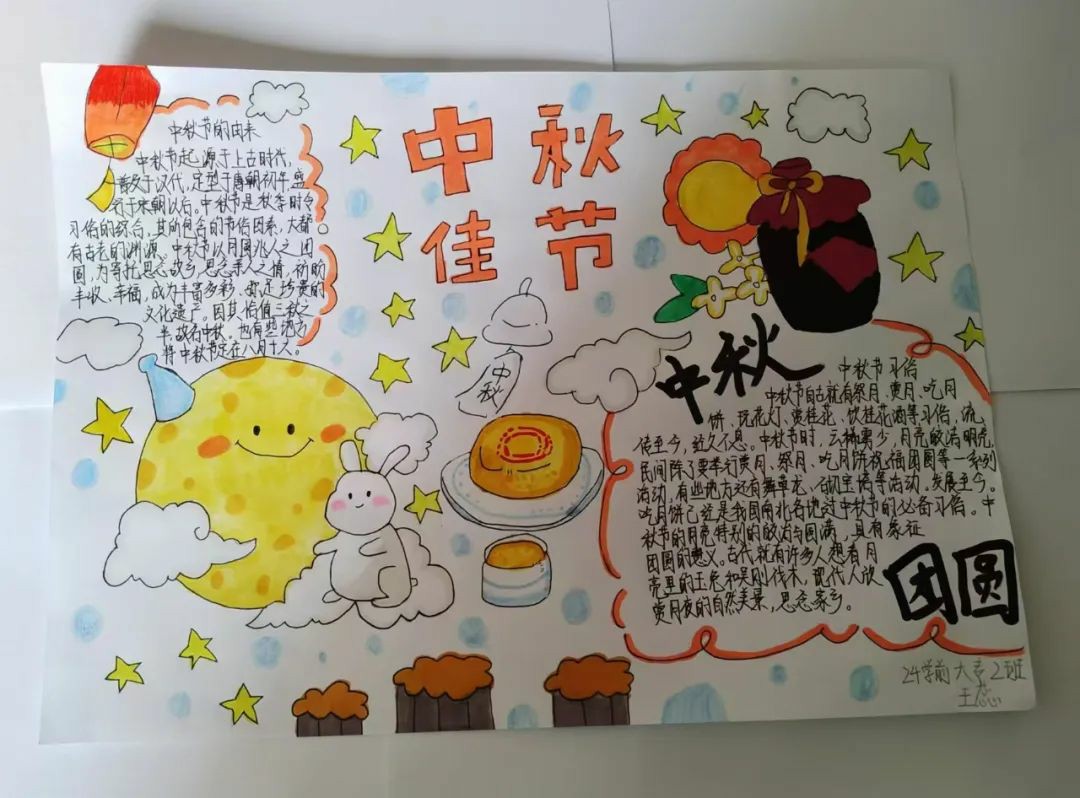 中秋佳节
中秋节的由来
中秋节起源于上古时代,
普及于汉代,定型于唐朝初年,盛
行于宋朝以后。中秋节是秋季时令
习俗的综合,其所包含的节俗因素,大都
有古老的渊源。中秋节以月圆兆人之团
圆,为寄托思念故乡,思念亲人之情,祈盼
丰收、幸福,成为丰富多彩、弥足珍贵的
文化遗产。因其恰值三秋之
半,故名中秋。也有些地方
将中秋节定在八月十六。
中秋
中秋
中秋节习俗
中秋节自古就有祭月、赏月、吃月
饼、玩花灯、赏桂花、饮桂花酒等习俗,流
传至今,经久不息。中秋节时,云稀雾少,月亮皎洁明亮,
民间除了要举行赏月、祭月、吃月饼祝福团圆等一系列
活动,有些地方还有舞草龙,砌宝塔等活动。发展至今,
吃月饼已经是我国南北各地过中秋节的必备习俗。中
秋节的月亮特别的皎洁与圆满,具有象征
团圆的意义。古代就有许多人想看月
亮里的玉兔和吴刚伐木,现代人议
赏月夜的自然美景,思念家乡。
团圆
24学前大专2班
王